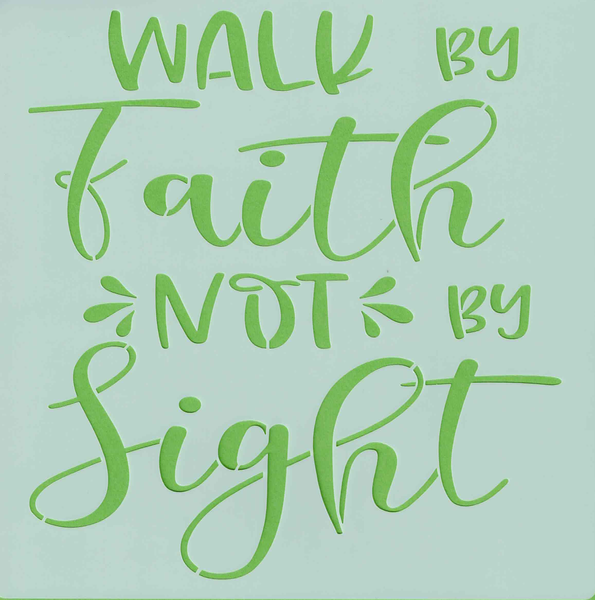 WALK BY
Faith
NOT BY
Sight